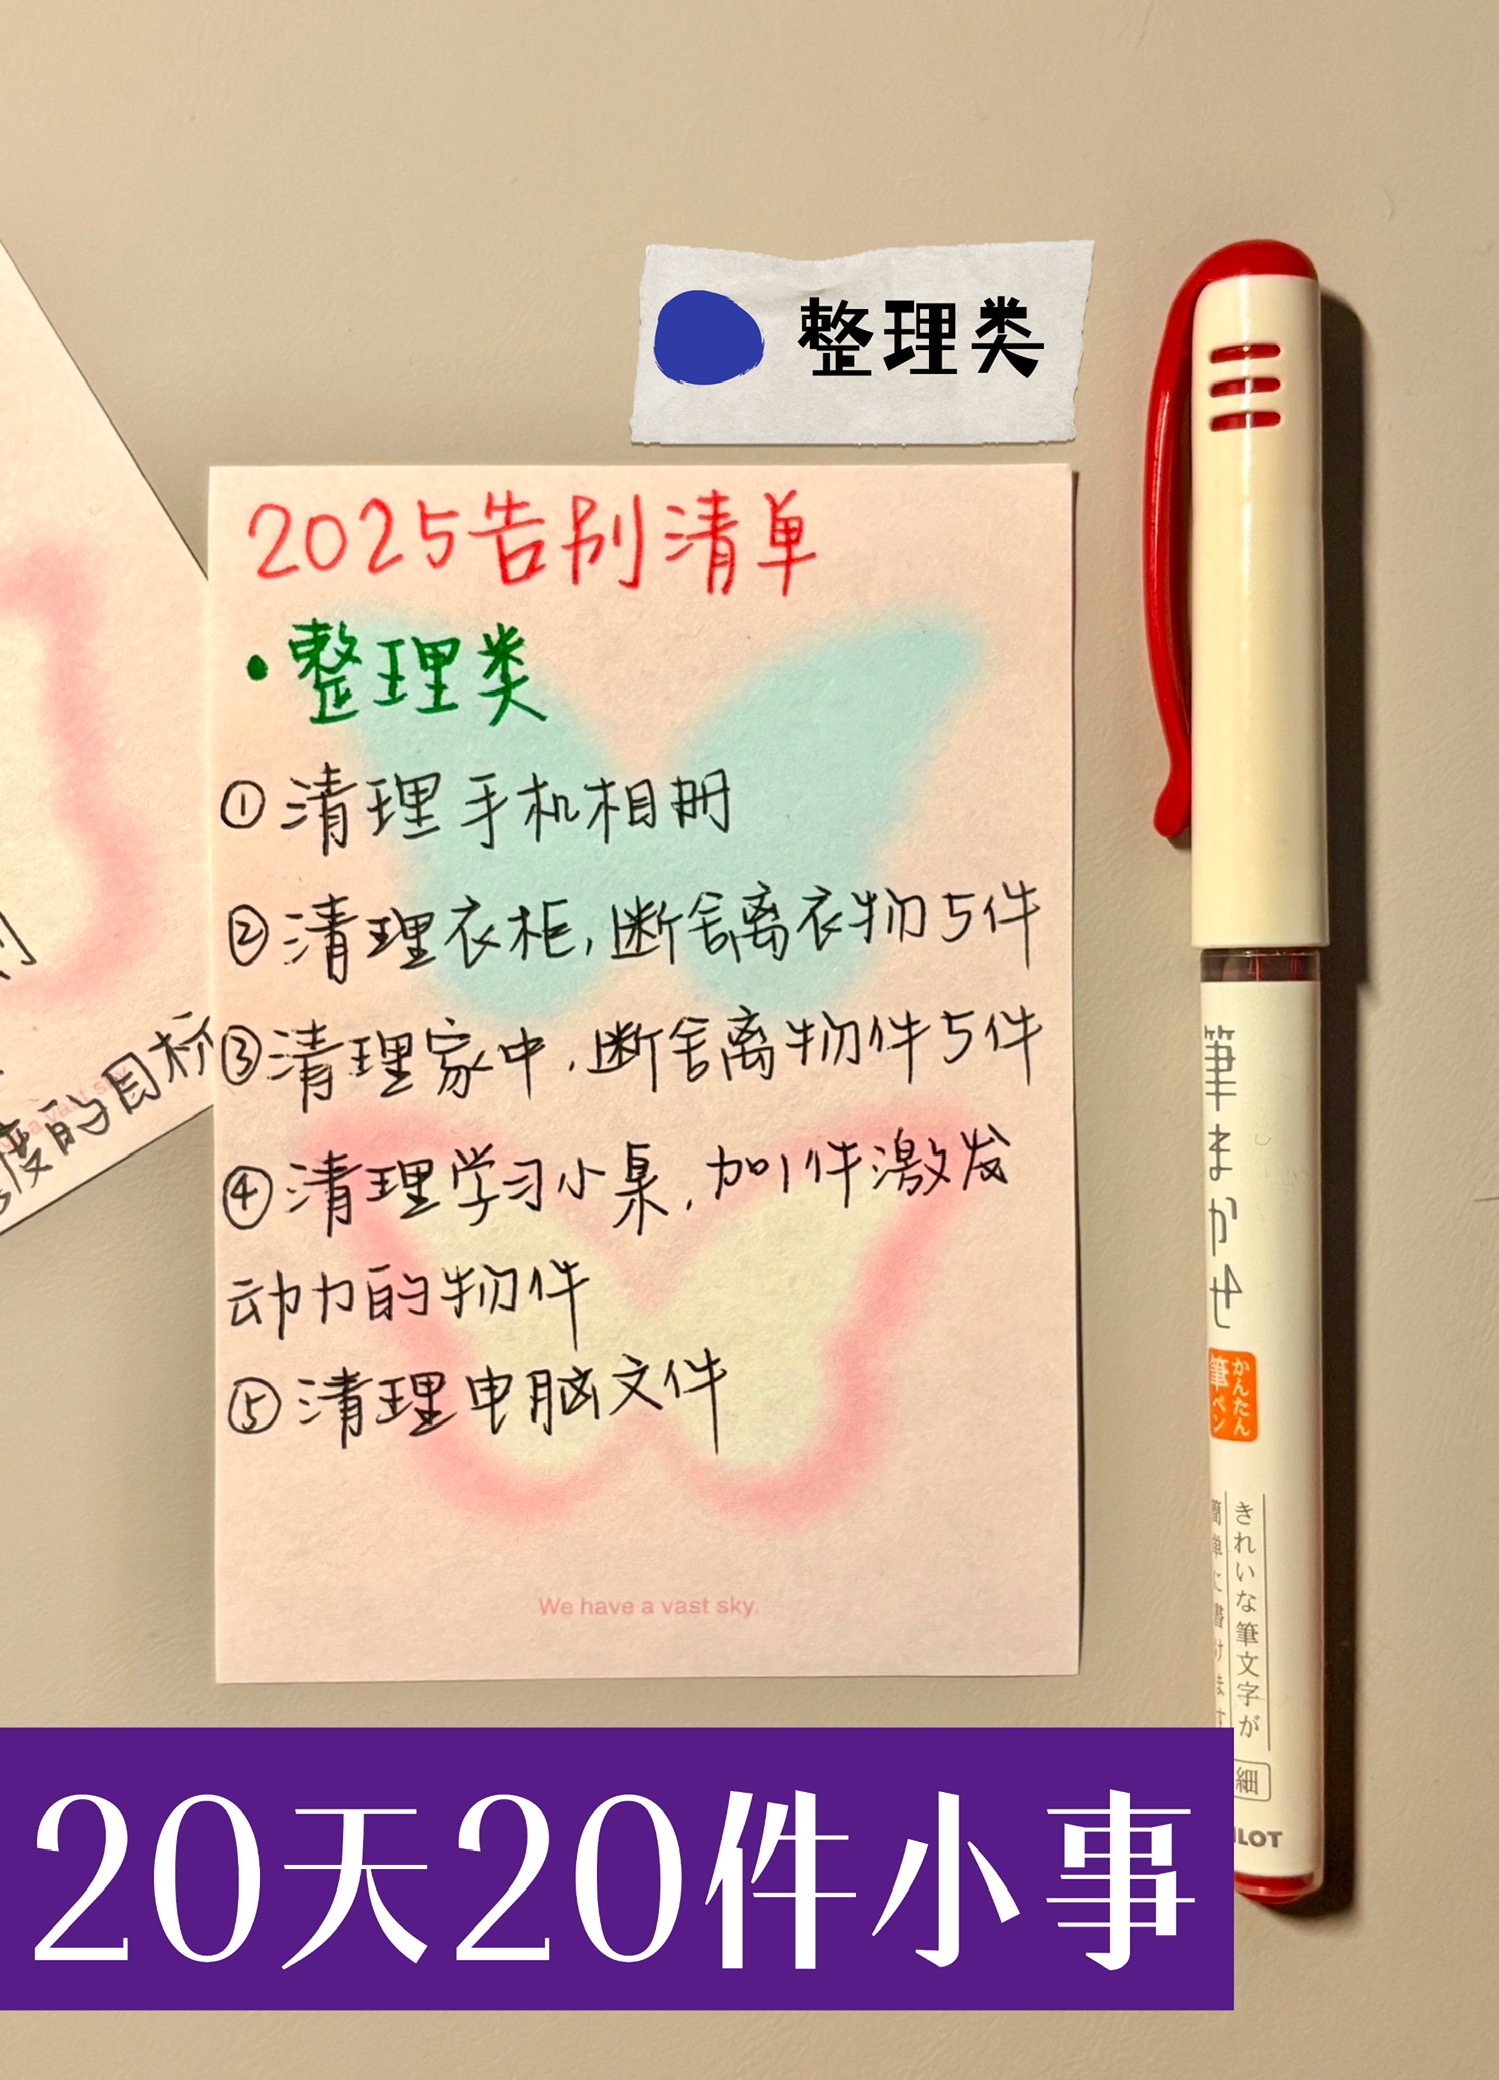 整理类
2025告别清单
·整理类
①清理手机相册
②清理衣柜,断舍离衣物5件
③清理家中,断舍离物件5件
④清理学习小桌,加1件激发
动力的物件
⑤清理电脑文件
We have a vast sky.
度的目标
筆まかせ
かんたん
筆ペン
きれいな筆文字が
簡単に書けます
細
ILOT
20天20件小事